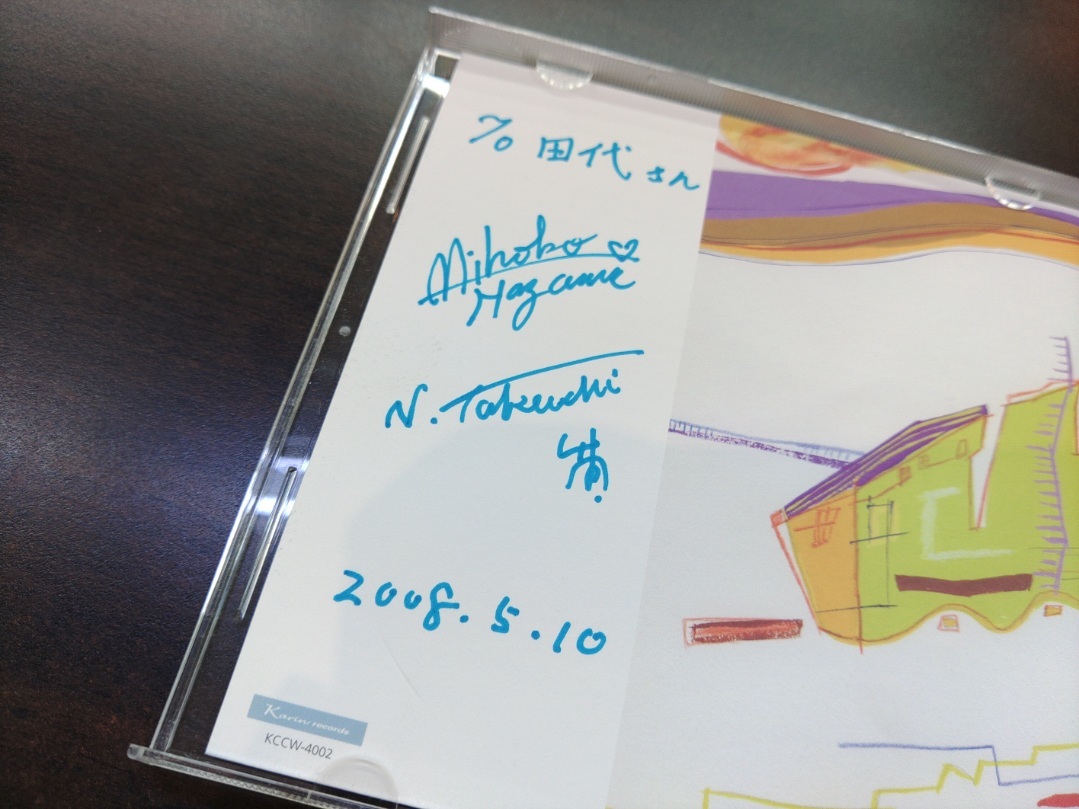 To 田代さん
Mihoko♡
Hazama
N. Takeuchi
2008.5.10
Karin records
KCCW-4002